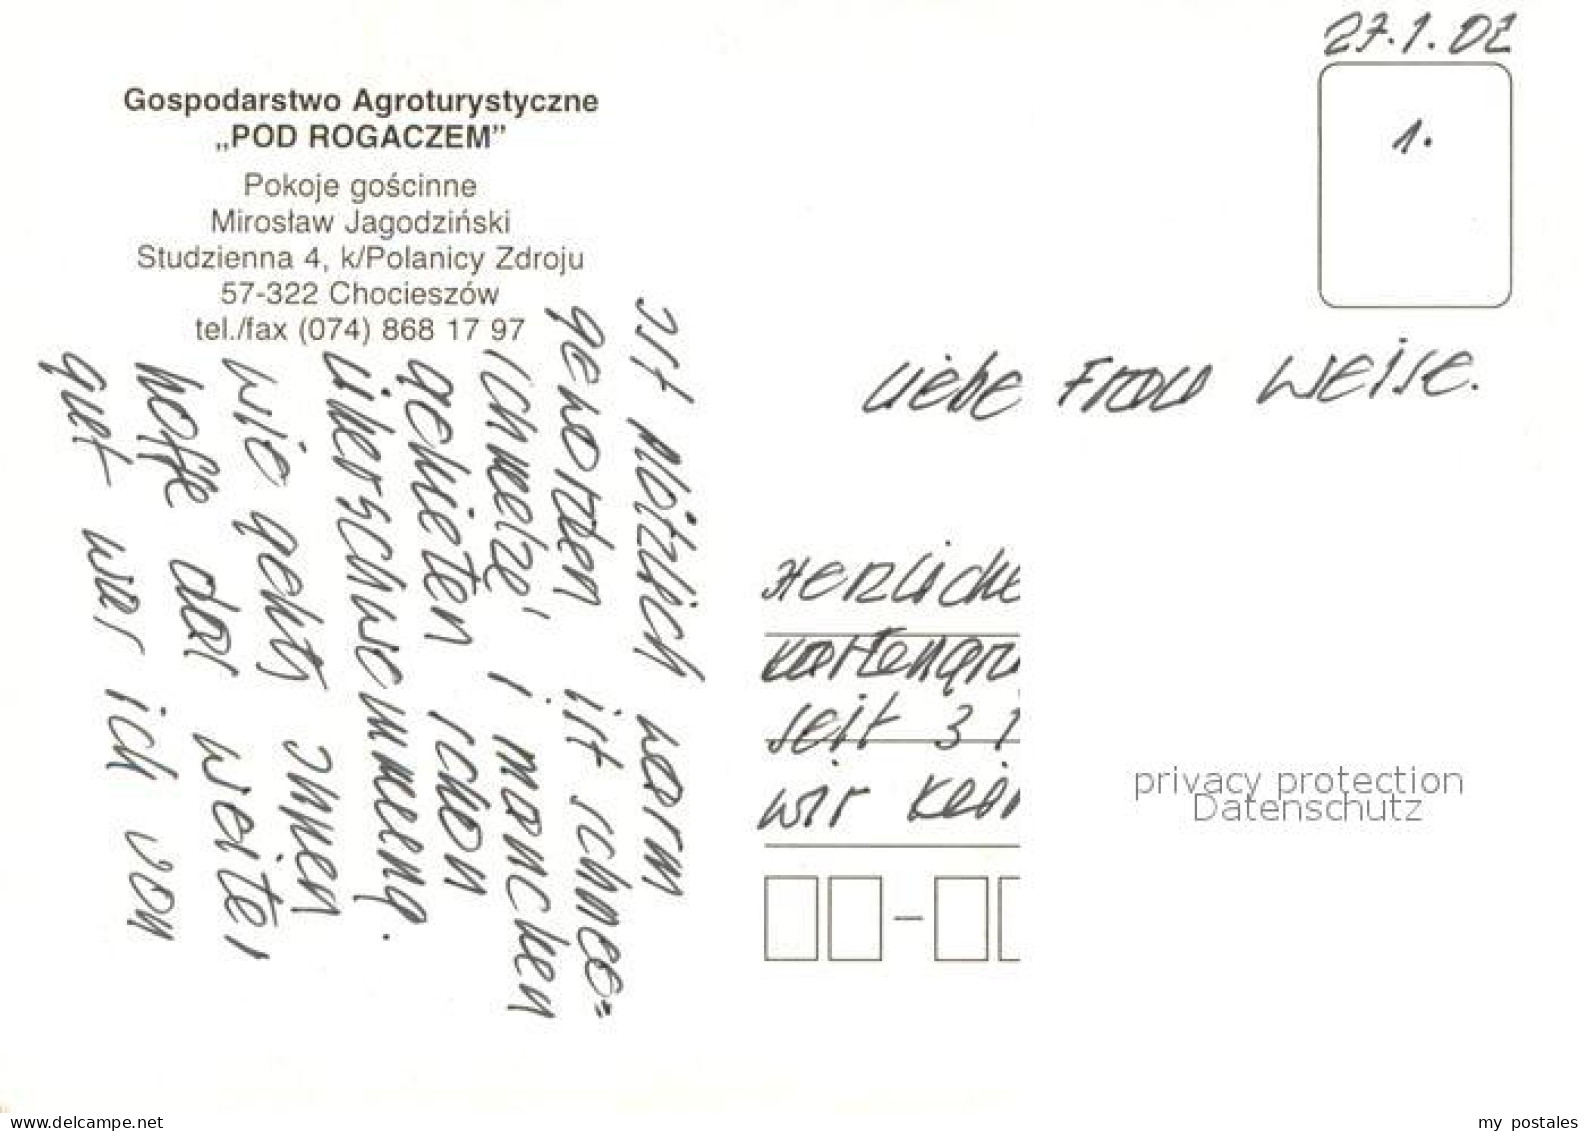 27.1.02
1.
Gospodarstwo Agroturystyczne
„POD ROGACZEM”
Pokoje gościnne
Mirosław Jagodziński
Studzienna 4, k/Polanicy Zdroju
57-322 Chocieszów
tel./fax (074) 868 17 97
Liebe Frau Weise.
Herzliche
Kartengrü
seit 3 1
wir kein
ist Plötzlich warm
geworden ist schnee=
schmelze, i manchen
gebieten schon
überschwemmung.
wie gehts Ihnen
hoffe das weiter
gut war ich von
privacy protection
Datenschutz
www.delcampe.net
my_postales